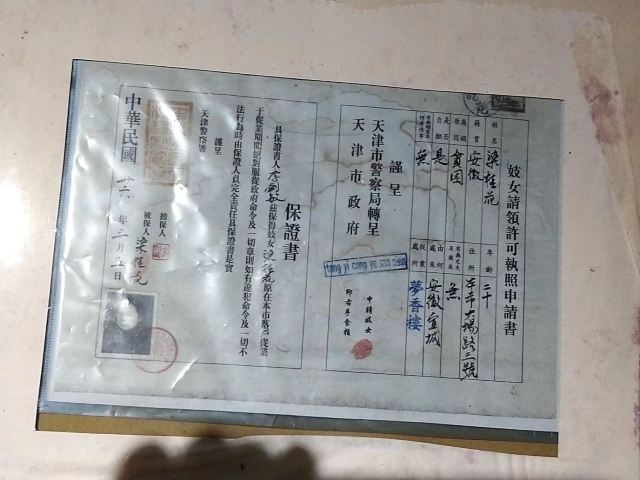 妓女請領許可執照申請書
姓名 梁桂花 年齡 二十
籍貫 安徽 住所 本市大場路三號
為娼原因 貧困 有無丈夫及親族 無
是否自願 是 由何處來 安徽宣城
無 從業處所 夢香樓
謹呈
天津市警察局轉呈
天津市政府
申請妓女
印右手食指
保證書
具保證書人李劍敏茲保得妓女梁桂花原在本市落戶從業
于從業期間絕對服從政府命令及一切章則如有違犯命令及一切不
法行為時由保證人員完全責任具保證書是實
謹呈
天津警察署
擔保人
被保人 梁桂花
中華民國 卅六年三月五日